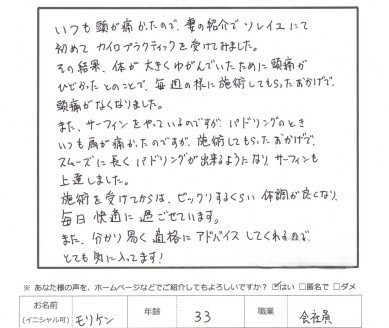 いつも頭が痛かったので、妻の紹介でソレイユにて
初めてカイロプラクティックを受けてみました。
その結果、体が大きくゆがんでいたために頭痛が
ひどかったとのことで、毎週の様に施術してもらったおかげで、
頭痛がなくなりました。
また、サーフィンをやっているのですが、パドリングのとき
いつも肩が痛かったのですが、施術してもらったおかげで、
スムーズに長くパドリングが出来るようになり、サーフィンも
上達しました。
施術を受けてからは、ビックリするくらい体調が良くなり、
毎日快適に過ごせています。
また、分かり易く適格にアドバイスしてくれるので、
とても気に入ってます!
※ あなた様の声を、ホームページなどでご紹介してもよろしいですか? ☑はい □匿名で □ダメ
お名前 (イニシャル可) モリケン 年齢 33 職業 会社員